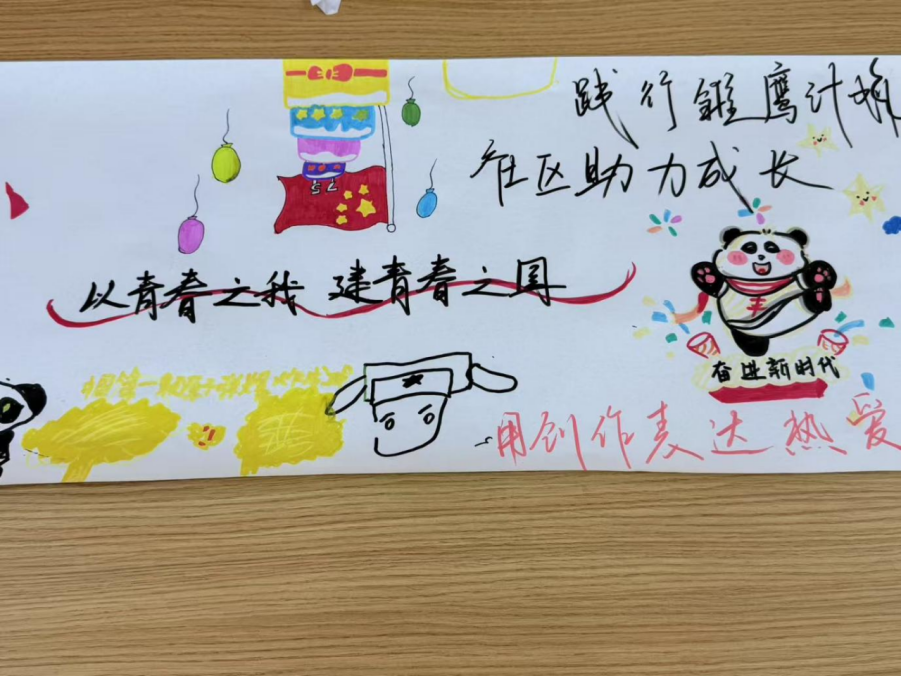 践行雏鹰计划
社区助力成长
75
以青春之我 建青春之国
奋进新时代
用创作表达热爱